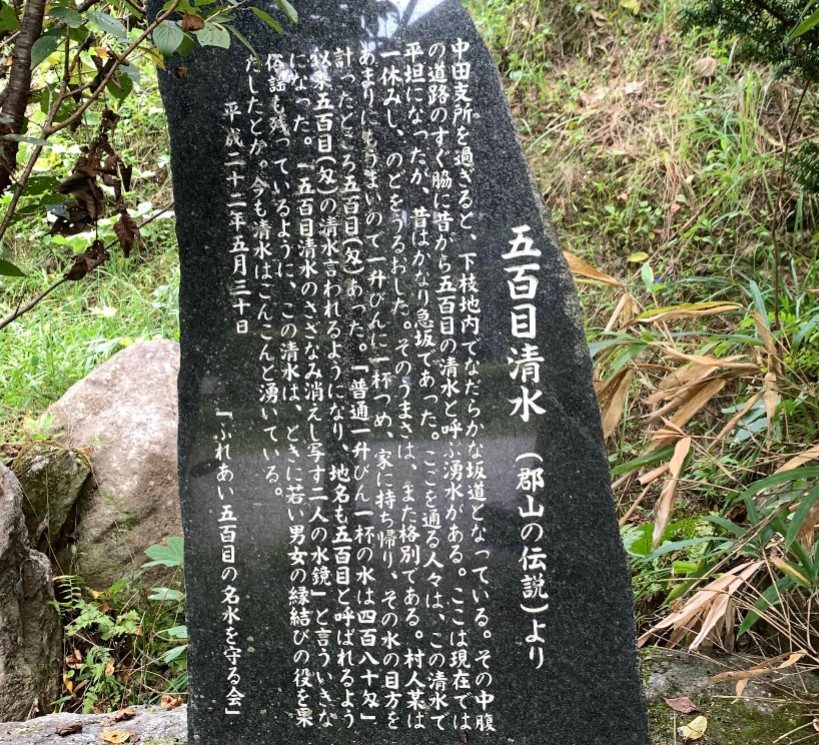 五百目清水（郡山の伝説）より
中田支所を過ぎると、下枝地内でなだらかな坂道となっている。その中腹
の道路のすぐ脇に昔から五百目の清水と呼ぶ湧水がある。ここは現在では
平坦になったが、昔はかなり急坂であった。ここを通る人々は、この清水で
一休みし、のどをうるおした。そのうまさは、また格別である。村人某は
あまりにもうまいので一升びんに一杯つめ、家に持ち帰り、その水の目方を
計ったところ五百目(匁)あった。「普通一升びん一杯の水は四百八十匁」
以来五百目(匁)の清水言われるようになり、地名も五百目と呼ばれるよう
になった。「五百目清水のさざなみ消えし写す二人の水鏡」と言ういきな
俗謡も残っているように、この清水は、ときに若い男女の縁結びの役を果
たしたとか。今も清水はこんこんと湧いている。
平成二十二年五月三十日
「ふれあい五百目の名水を守る会」